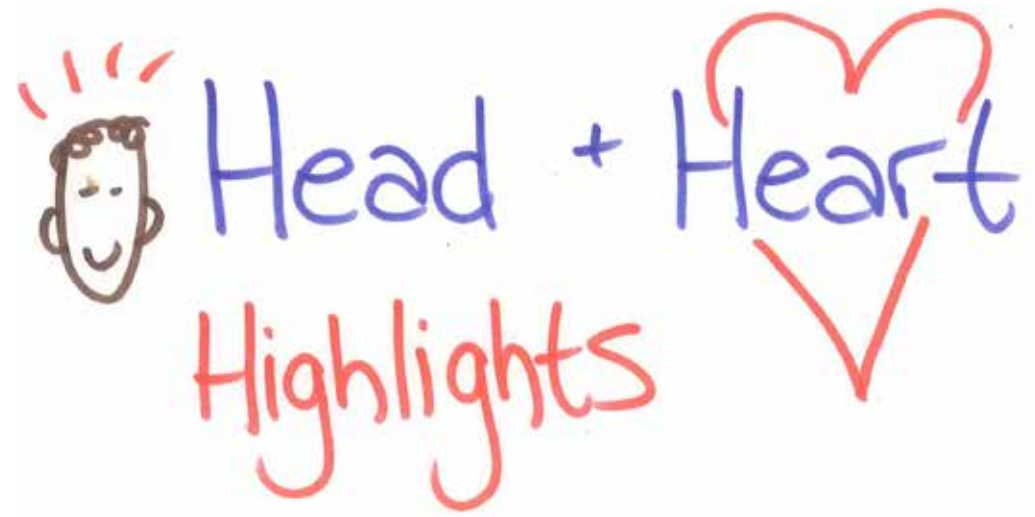 Head + Heart
Highlights